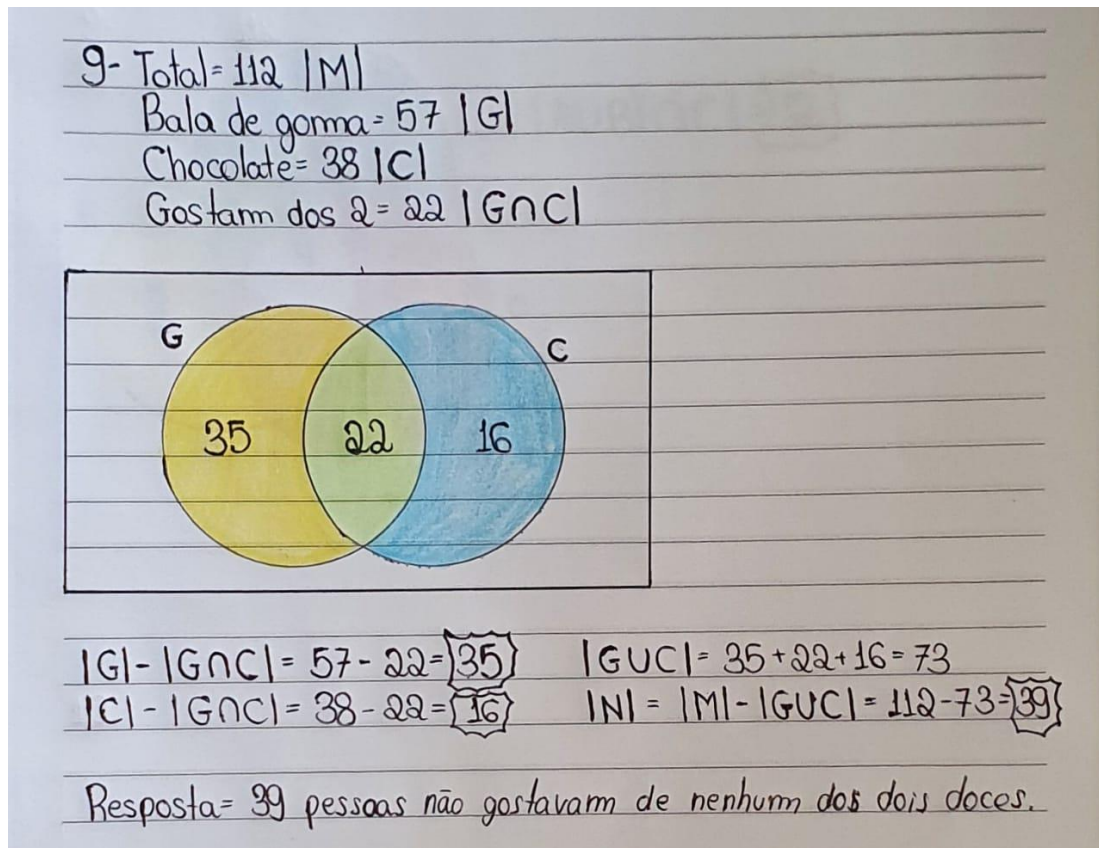 9- Total= 112 |M|
Bala de goma= 57 |G|
Chocolate= 38 |C|
Gostam dos 2= 22 |G∩C|
G
C
35 22 16
|G|-|G∩C|= 57-22= 35 |G∪C|= 35+22+16= 73
|C|-|G∩C|= 38-22= 16 |N|= |M|-|G∪C|= 112-73= 39
Resposta= 39 pessoas não gostavam de nenhum dos dois doces.